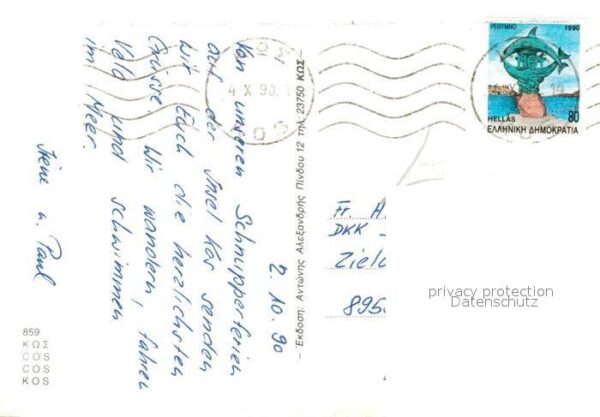 2.10.90
Von unseren Schnupperferien
auf der Insel Kos senden
wir Euch die herzlichsten
Grüsse. Wir wandern, fahren
Velo und schwimmen
im Meer.
Irene u. Paul
– Έκδοση: Αντώνης Αλεξανδρής Πίνδου 12 τηλ. 23750 ΚΩΣ –
ΚΩΣ
4 X 90
KOS
ΡΕΘΥΜΝΟ 1990
HELLAS 80
ΕΛΛΗΝΙΚΗ ΔΗΜΟΚΡΑΤΙΑ
Fr. H
DKK -
Ziel
895
privacy protection
Datenschutz
859
ΚΩΣ
COS
COS
KOS